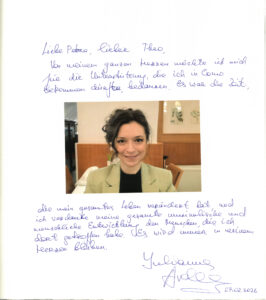 Liebe Petra, lieber Theo,
Von meinem ganzen Herzen möchte ich mich
für die Unterstützung, die ich in Como
bekommen durfte, bedanken. Es war die Zeit,
die mein gesamtes Leben verändert hat, und
ich verdanke meine gesamte musikalische und
menschliche Entwicklung den Menschen die ich
dort getroffen habe. Es wird immer in meinem
Herzen bleiben.